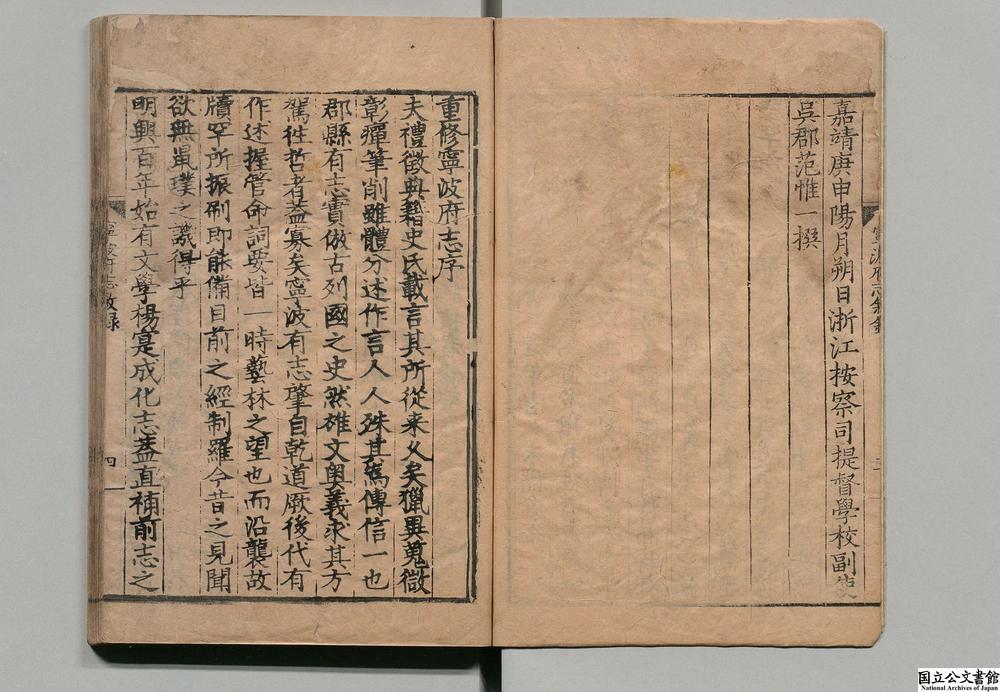 嘉靖庚申陽月朔日浙江按察司提督學校副使
吳郡范惟一撰
重修寧波府志序
夫禮徵典籍史氏載言其所從来乂矣獵異蒐微
彰癉筆削雖體分述作言人人殊其爲傳信一也
郡縣有志實倣古列國之史然雄文奧義求其方
駕往哲者蓋寡矣寧波有志肇自乾道厥後代有
作述握管命詞要皆一時藝林之望也而沿襲故
牘罕所振刷即能備目前之經制羅今昔之見聞
欲無鼠璞之譏得乎
明興百年始有文學楊寔成化志蓋直補前志之
四
国立公文書館
National Archives of Japan